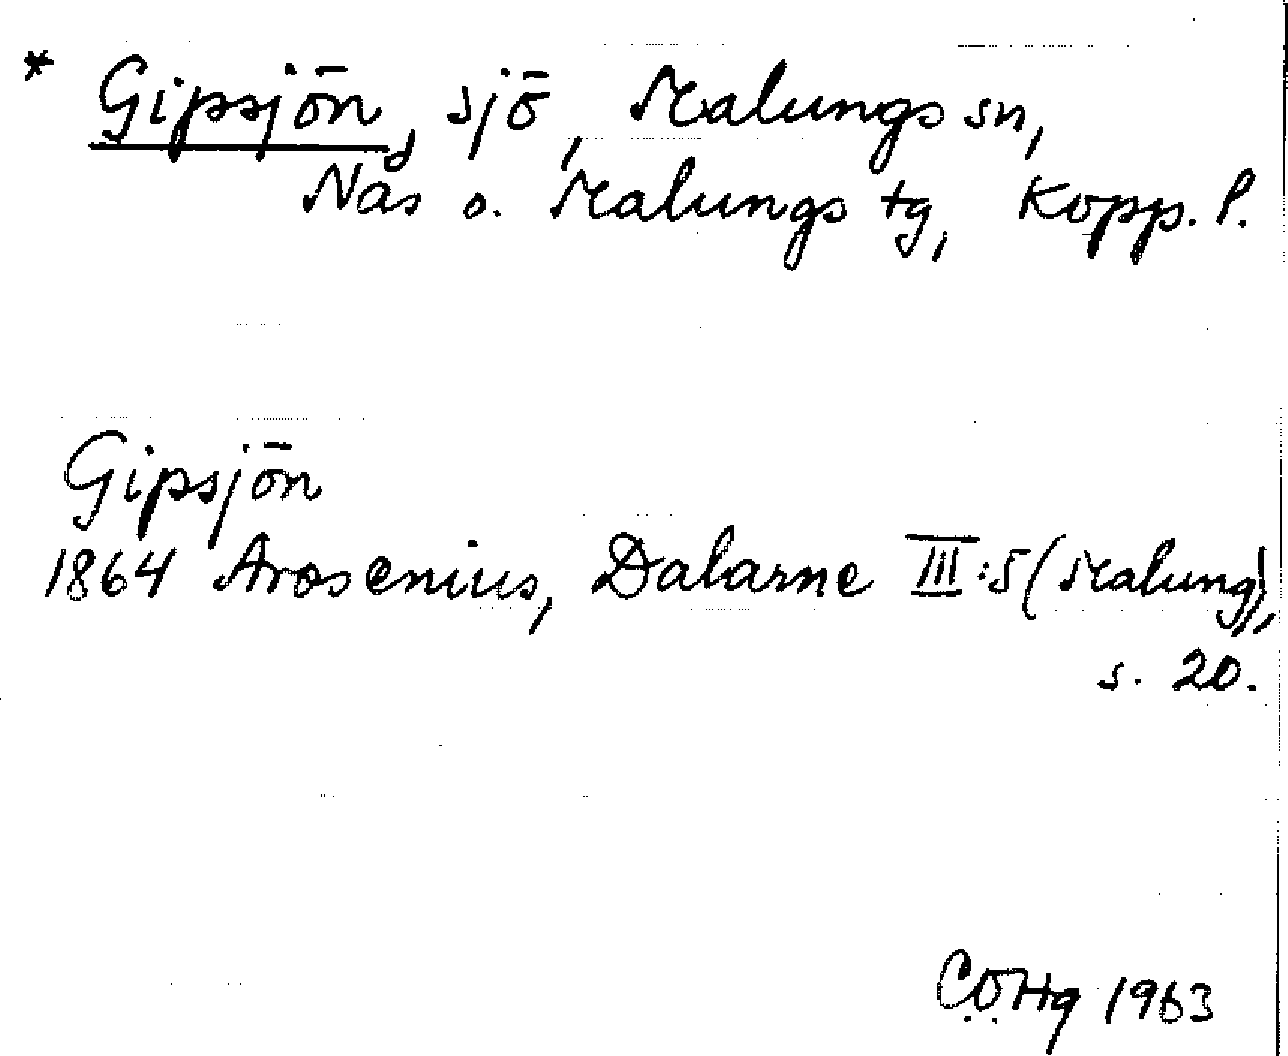 * Gipsjön, sjö, Malungs sn,
Nås o. Malungs tg, Kopp. l.
Gipsjön
1864 Arosenius, Dalarne III:5 (Malung),
s. 20.
C.Ö.Hg 1963